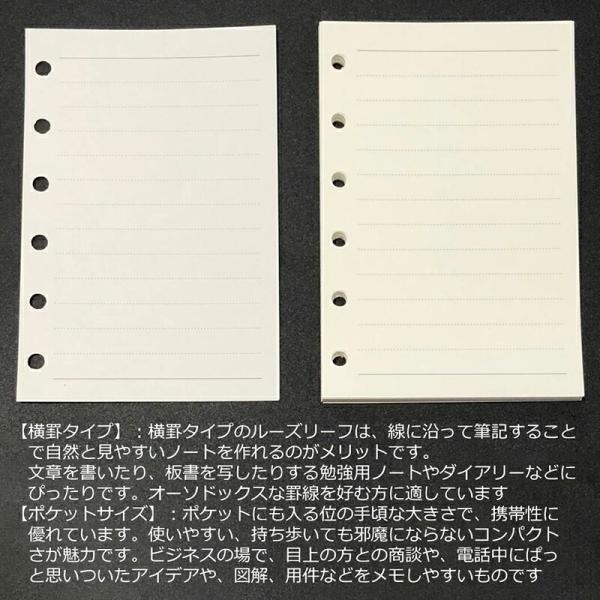 【横罫タイプ】：横罫タイプのルーズリーフは、線に沿って筆記すること
で自然と見やすいノートを作れるのがメリットです。
文章を書いたり、板書を写したりする勉強用ノートやダイアリーなどに
ぴったりです。オーソドックスな罫線を好む方に適しています
【ポケットサイズ】：ポケットにも入る位の手頃な大きさで、携帯性に
優れています。使いやすい、持ち歩いても邪魔にならないコンパクト
さが魅力です。ビジネスの場で、目上の方との商談や、電話中にぱっ
と思いついたアイデアや、図解、用件などをメモしやすいものです